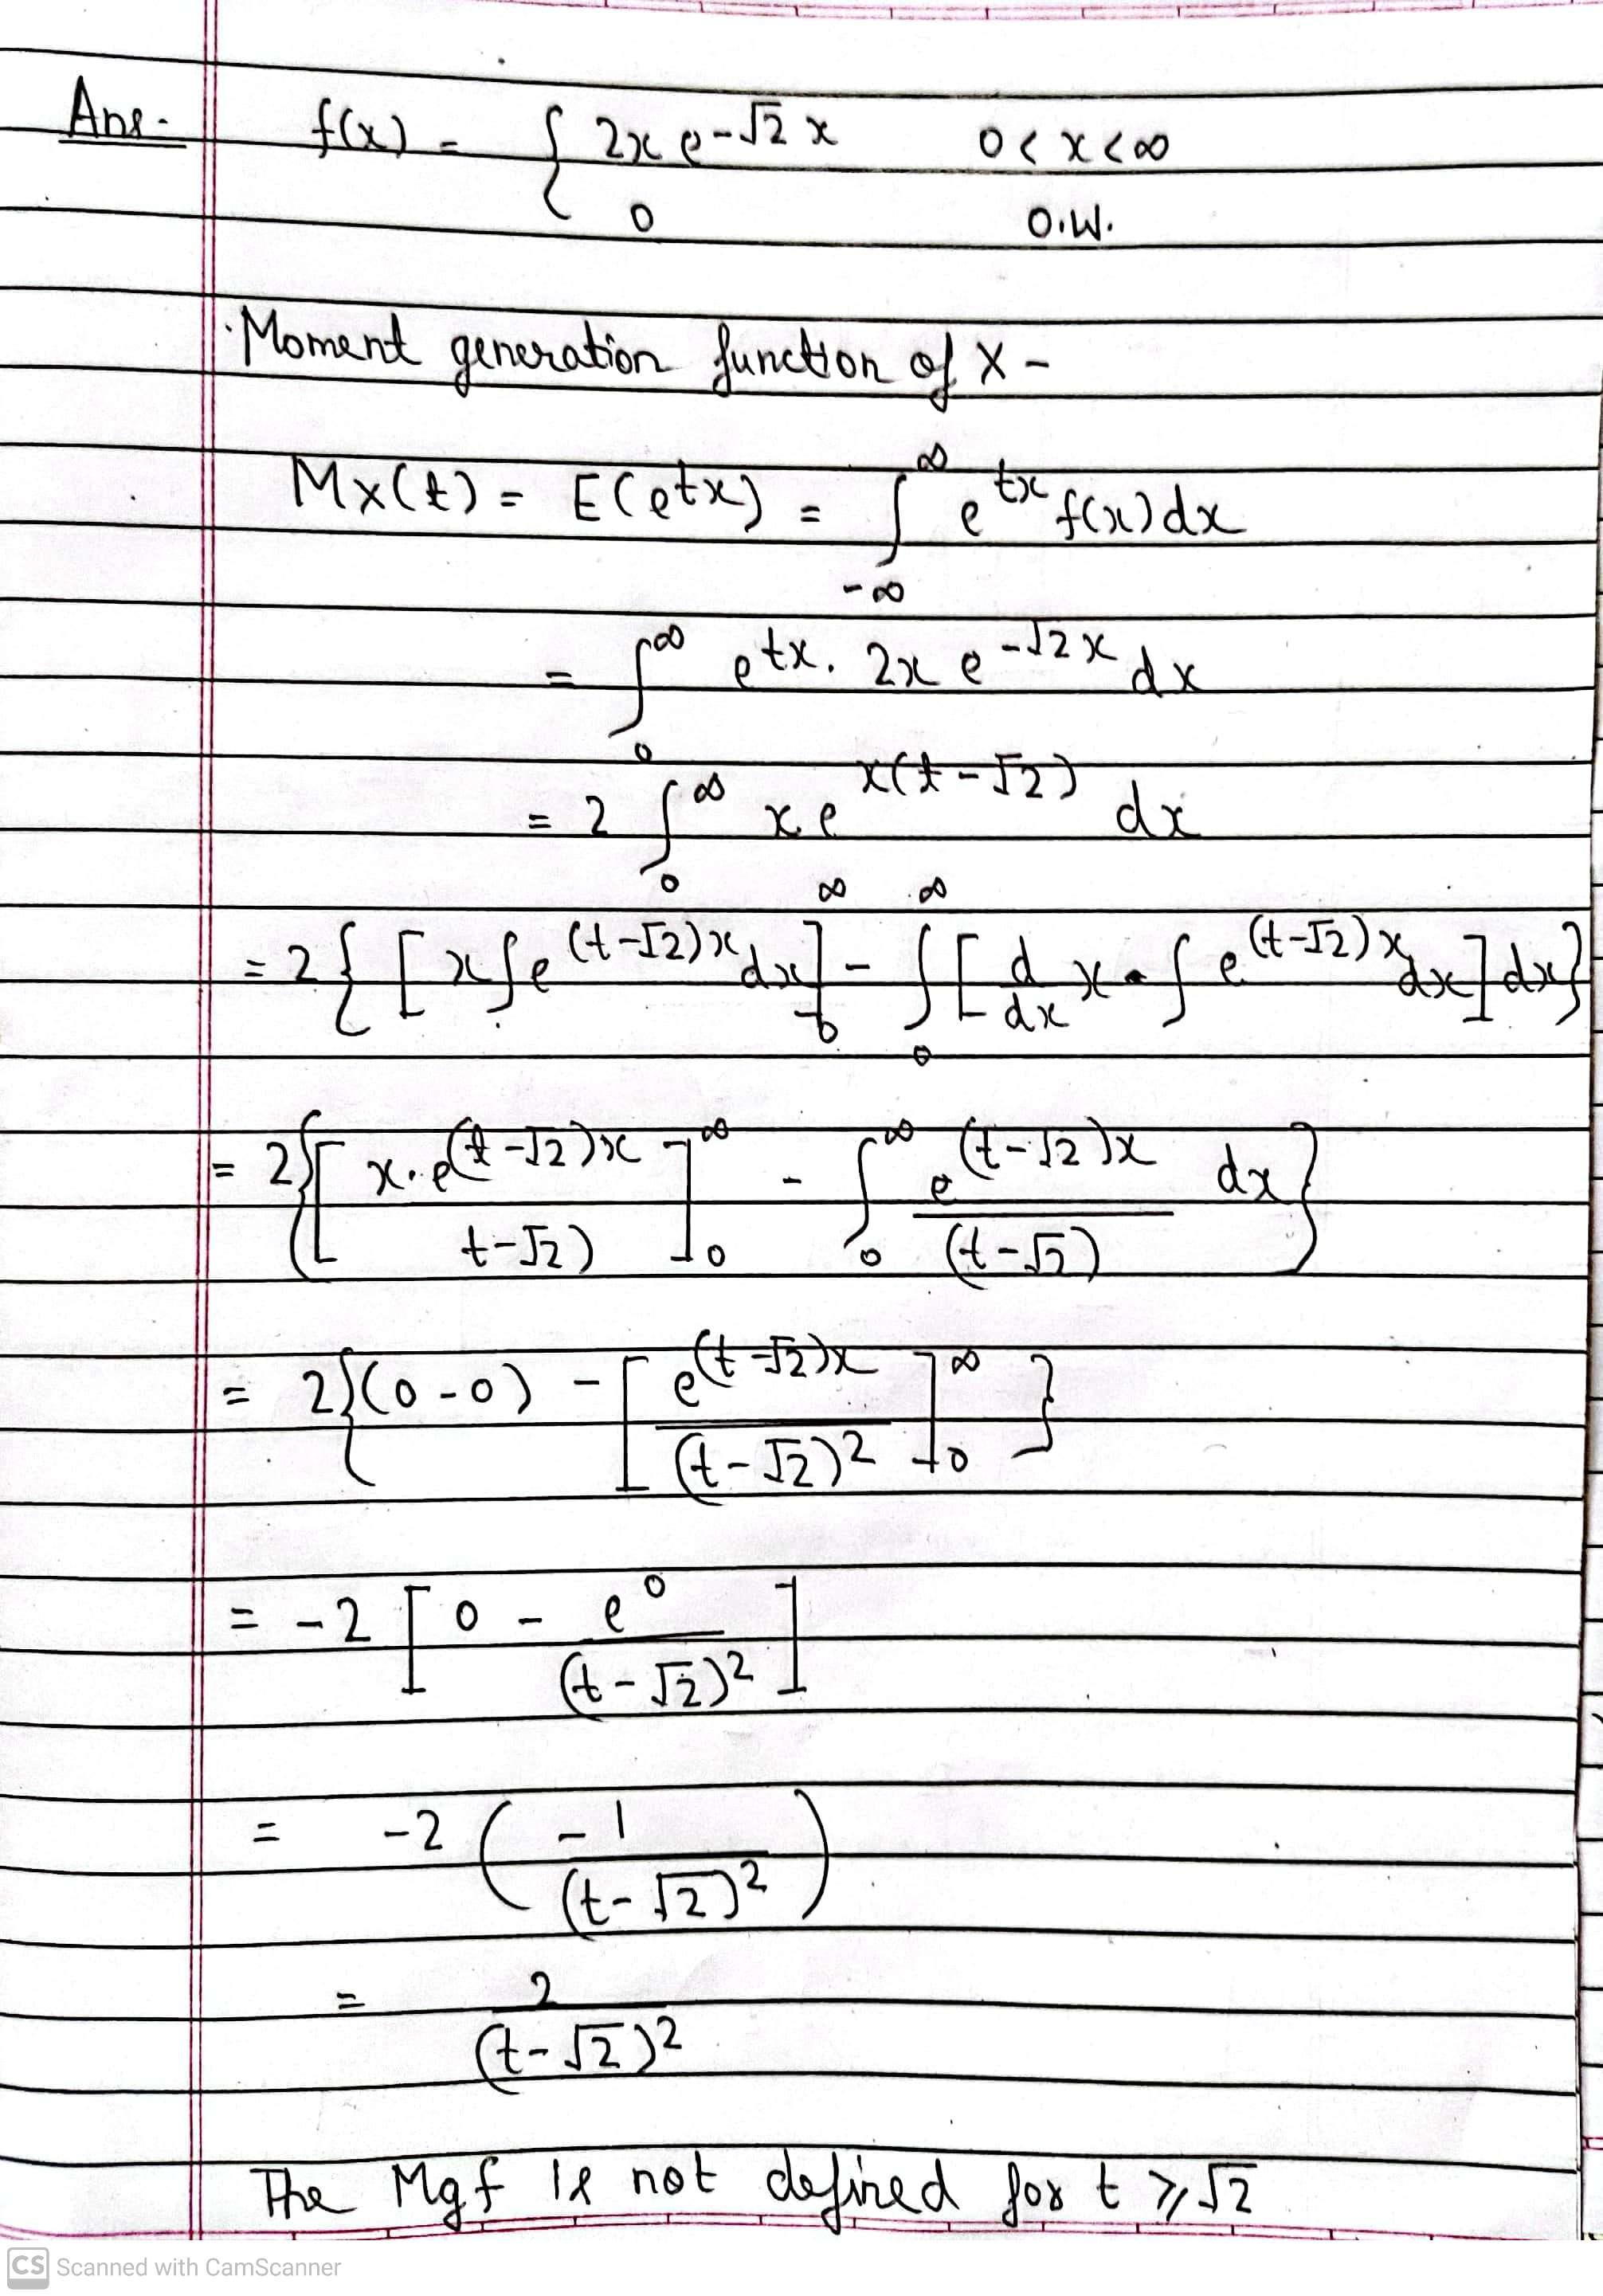 Ans.   f(x) = { 2x e^{-√2 x}   0 < x < ∞
0   O.W.
Moment generation function of X -
Mx(t) = E(e^{tx}) = ∫_{-∞}^{∞} e^{tx} f(x) dx
= ∫_0^∞ e^{tx}. 2x e^{-√2 x} dx
= 2 ∫_0^∞ x e^{x(t-√2)} dx
= 2 { [ x ∫ e^{(t-√2)x} dx ]_0^∞ - ∫_0^∞ [ d/dx x . ∫ e^{(t-√2)x} dx ] dx }
= 2 { [ x. e^{(t-√2)x} / t-√2) ]_0^∞ - ∫_0^∞ e^{(t-√2)x} / (t-√2) dx }
= 2 { (0-0) - [ e^{(t-√2)x} / (t-√2)^2 ]_0^∞ }
= -2 [ 0 - e^0 / (t-√2)^2 ]
= -2 ( -1 / (t-√2)^2 )
= 2 / (t-√2)^2
The Mgf is not defined for t ≥ √2
CS Scanned with CamScanner